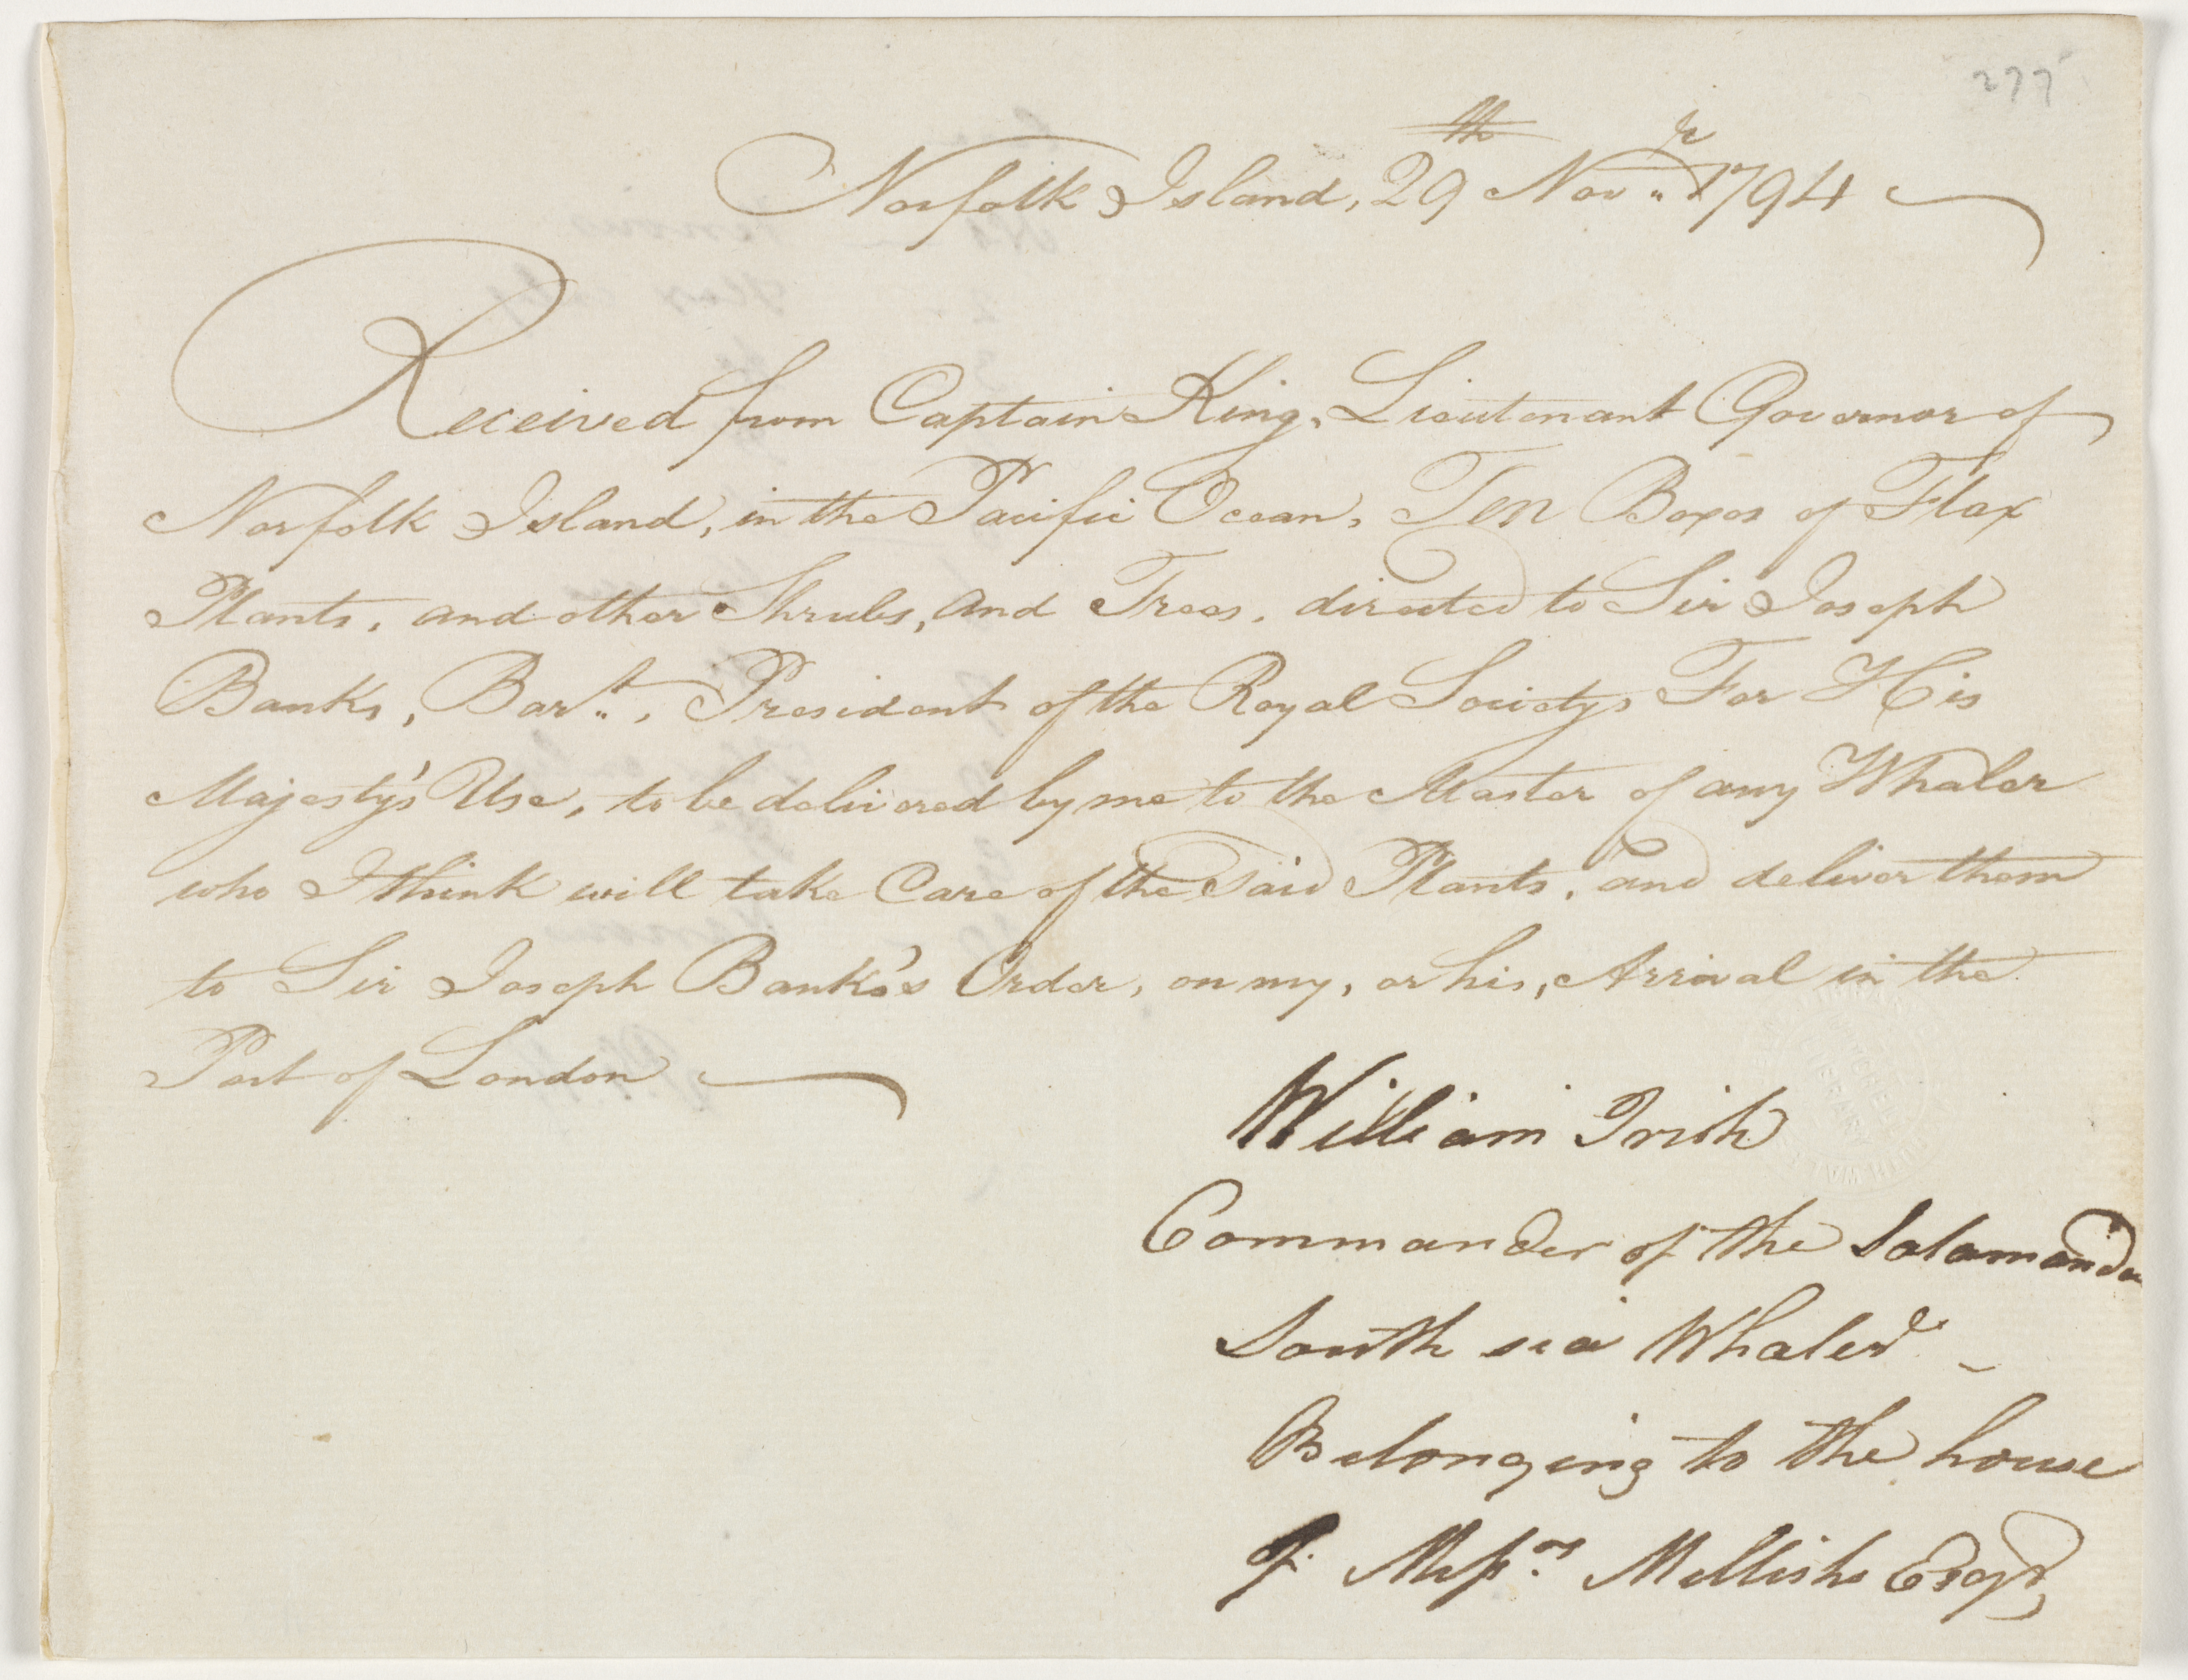 277
Norfolk Island, 29th Novr. 1794
Received from Captain King, Lieutenant Governor of
Norfolk Island, in the Pacific Ocean, Ten Boxes of Flax
Plants, and other Shrubs, and Trees, directed to Sir Joseph
Banks, Bart., President of the Royal Society, For His
Majesty's Use, to be delivered by me to the Master of any Whaler
who I think will take Care of the said Plants, and deliver them
to Sir Joseph Banks's Order, on my, or his, Arrival in the
Port of London
William Irish
Commander of the Salamander
South sea Whaler
Belonging to the house
of Messrs. Mellish Esqr